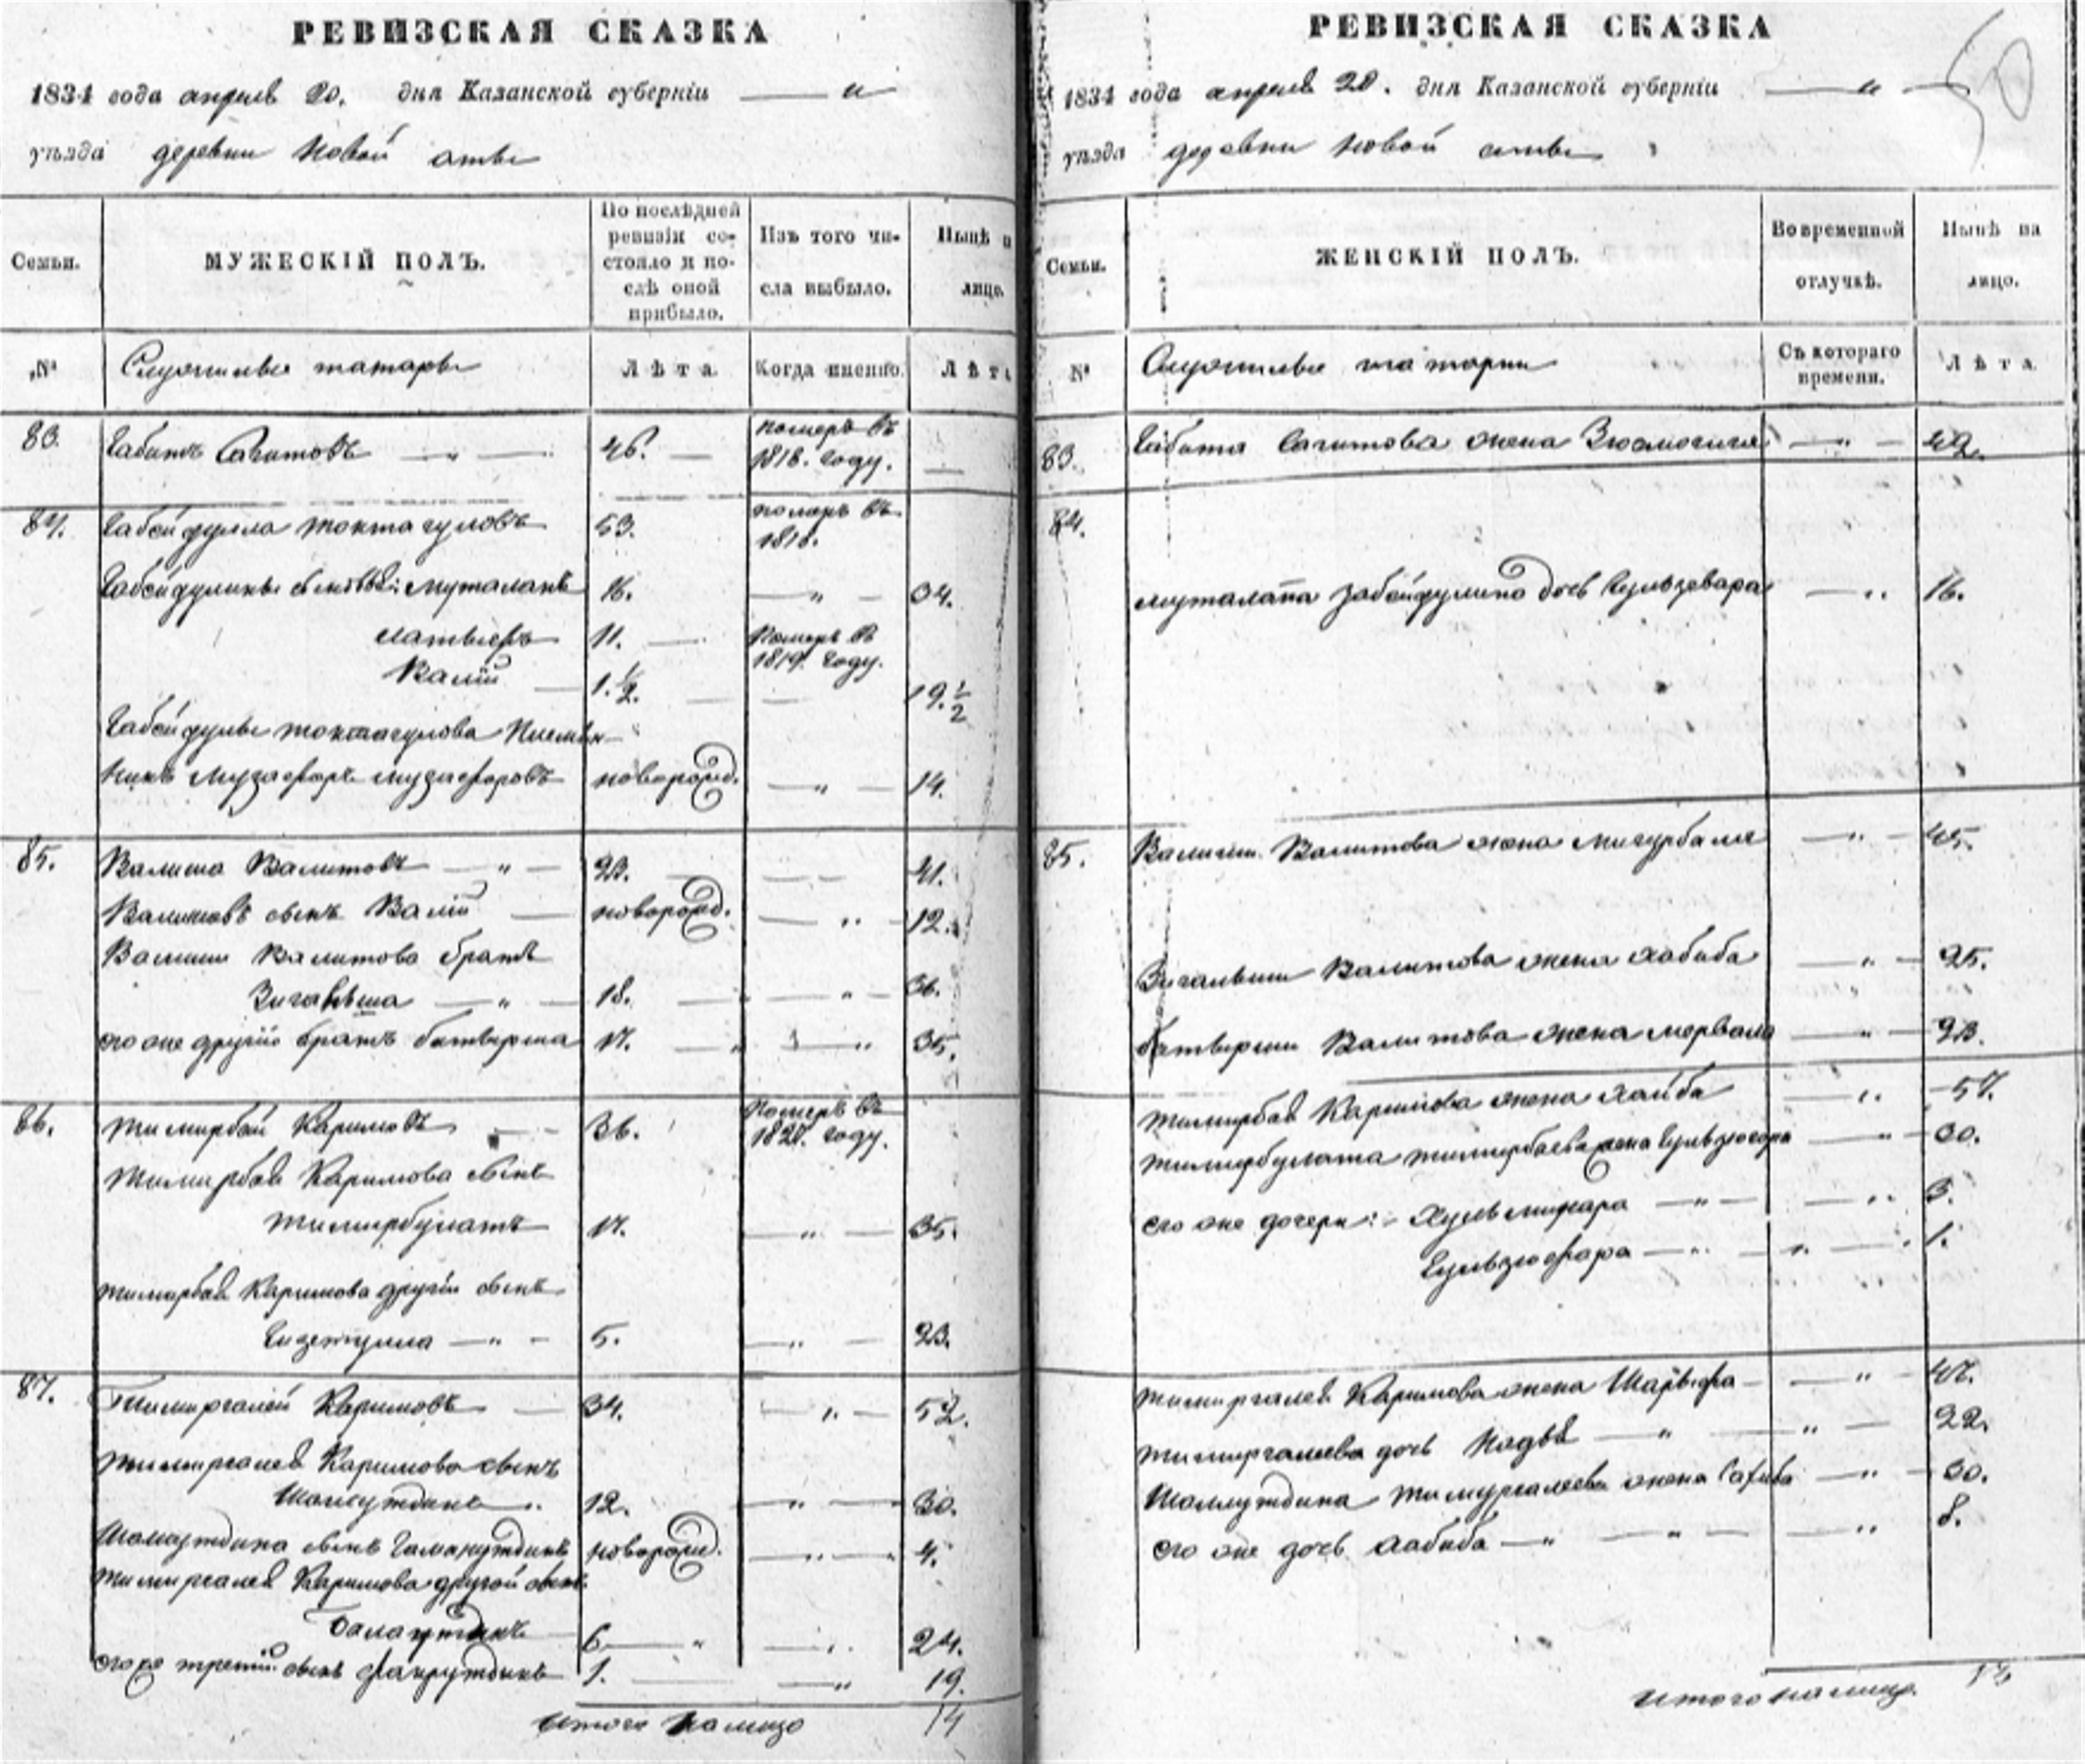 РЕВИЗСКАЯ СКАЗКА
1834 года апреля 20. дня Казанской губерніи — „
уѣзда деревни Новой атны
Семьи.
МУЖЕСКІЙ ПОЛЪ.
По послѣдней ревизіи состояло и послѣ оной прибыло.
Изъ того числа выбыло.
Нынѣ н лицо.
№
Служилые татары
Лѣта
Когда именно.
Лѣт
83. Габитъ Сагитовъ — „ — 46. — померъ въ 1818. году. —
84. Габейдулла токтагуловъ 53. померъ въ 1818.
Габейдуллины сыновья: Муталапъ 16. — „ — 34.
11. — Померъ въ 1819. году.
Валій — 1.½. — — 19.½
Габейдуллы токтагулова Племян-
никъ Музафаръ музафаровъ новорожд. — „ — 14.
85. Валиша Валитовъ — „ — 23. — — 41.
Валишовъ сынъ Валій — новорожд. — „ — 12.
Валиши Валитова братъ
Зиганьша — „ — 18. — „ — 36.
его же другій братъ батырша 17. — „ — „ 35.
86. тимирбай Каримовъ — 36. Померъ въ 1827. году.
Тимирбая Каримова сынъ
тимирбулатъ 17. — „ — 35.
тимирбая Каримова другій сынъ
Гизетулла — „ — 5. — „ — 23.
87. Тимиргалей Каримовъ — 34. — „ — 52.
тимиргалея Каримова сынъ
Шамсутдинъ „ 12. — „ — 30.
сынъ новорожд. — „ — 4.
тимиргалея Каримова другой сынъ
6. — „ — „ 24.
его же третій сынъ Фахрутдинъ 1. — — „ 19.
Итого налицо 14
РЕВИЗСКАЯ СКАЗКА
50
1834 года апреля 20. дня Казанской губерніи — „ —
уѣзда деревни Новой атны
Семьи.
ЖЕНСКІЙ ПОЛЪ.
Во временной отлучкѣ.
Нынѣ на лицо.
№
Служилые татарки
Съ котораго времени.
Лѣта
83. Габита Сагитова жена — „ — 49.
84.
муталапа габейдулина дочь — „ 16.
85. Валиши Валитова жена — „ — 45.
Зиганьши Валитова жена Хабиба — „ — 25.
батырши Валитова жена — „ — 23.
тимирбая Каримова жена — „ — 57.
тимирбулата тимирбаева жена — „ — 30.
его же дочери: — „ — — „ 3.
Гульзюфара — „ — „ — 1.
тимиргалея Каримова жена Шарифа — — „ — 47.
тимиргалеева дочь — „ — „ — 22.
Шамсутдина тимургалеева жена — „ — 30.
его же дочь Хабиба — „ — „ — — „ 8.
Итого налицо. 13